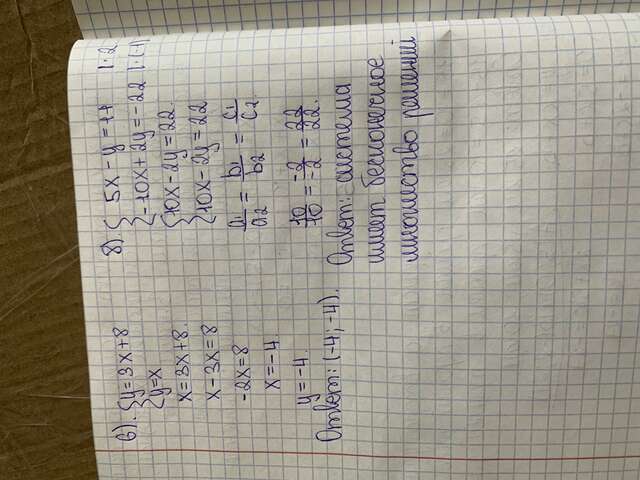 6). {y=3x+8
{y=x
x=3x+8.
x-3x=8
-2x=8
x=-4.
y=-4.
Ответ: (-4; -4).
8). { 5x-y=11 |·2
{-10x+2y=-22 |·(-1)
{10x-2y=22
{10x-2y=22
a₁/a₂ = b₁/b₂ = c₁/c₂
10/10 = -2/-2 = 22/22.
Ответ: система
имеет бесконечное
множество решений